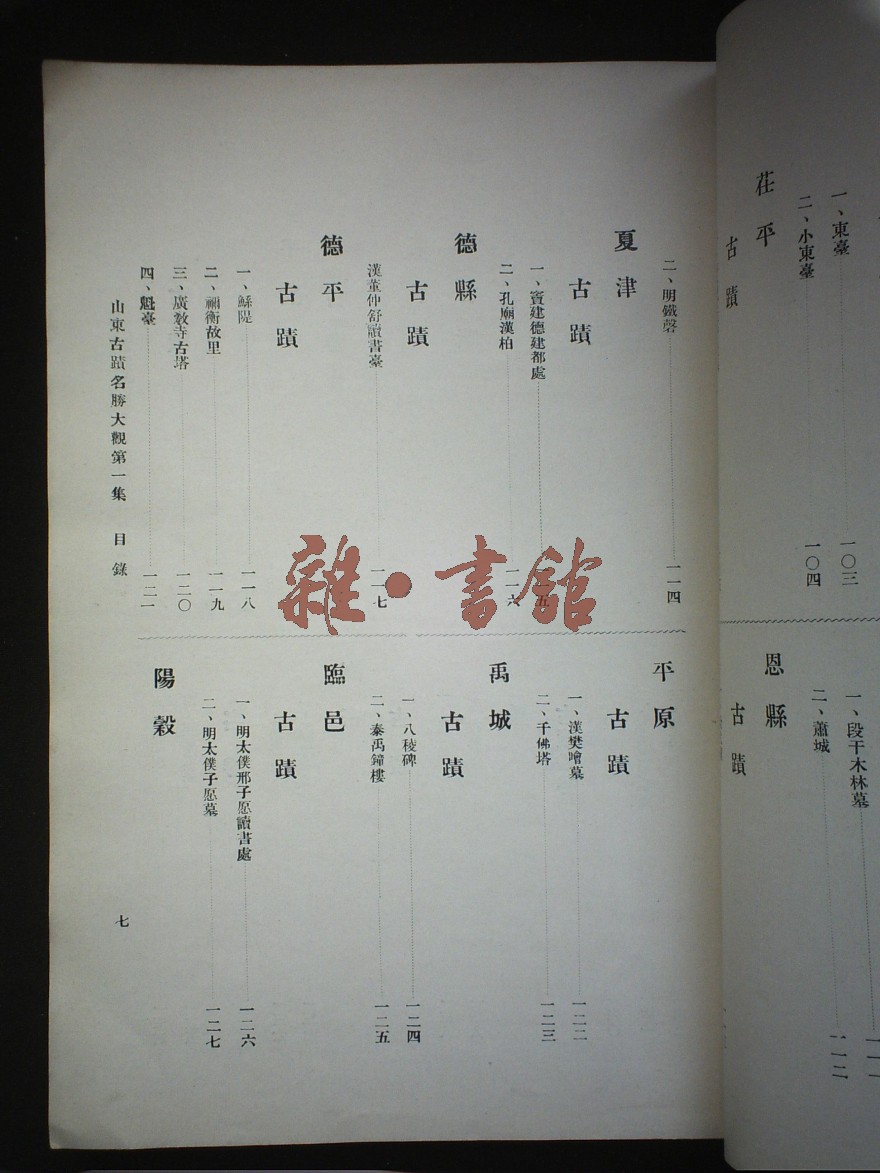 茌平
古蹟
一、東臺 一〇三
二、小東臺 一〇四
恩縣
古蹟
一、段干木林墓
二、蕭城 一一二
二、明鐵磬 一一四
夏津
古蹟
一、竇建德建都處 一一五
二、孔廟漢柏 一一六
德縣
古蹟
漢董仲舒讀書臺 一一七
德平
古蹟
一、鯀隄 一一八
二、禰衡故里 一一九
三、廣教寺古塔 一二〇
四、魁臺 一二一
平原
古蹟
一、漢樊噲墓 一二二
二、千佛塔 一二三
禹城
古蹟
一、八稜碑 一二四
二、秦禹鐘樓 一二五
臨邑
古蹟
一、明太僕邢子愿讀書處 一二六
二、明太僕子愿墓 一二七
陽穀
山東古蹟名勝大觀第一集 目錄
七
雜·書館